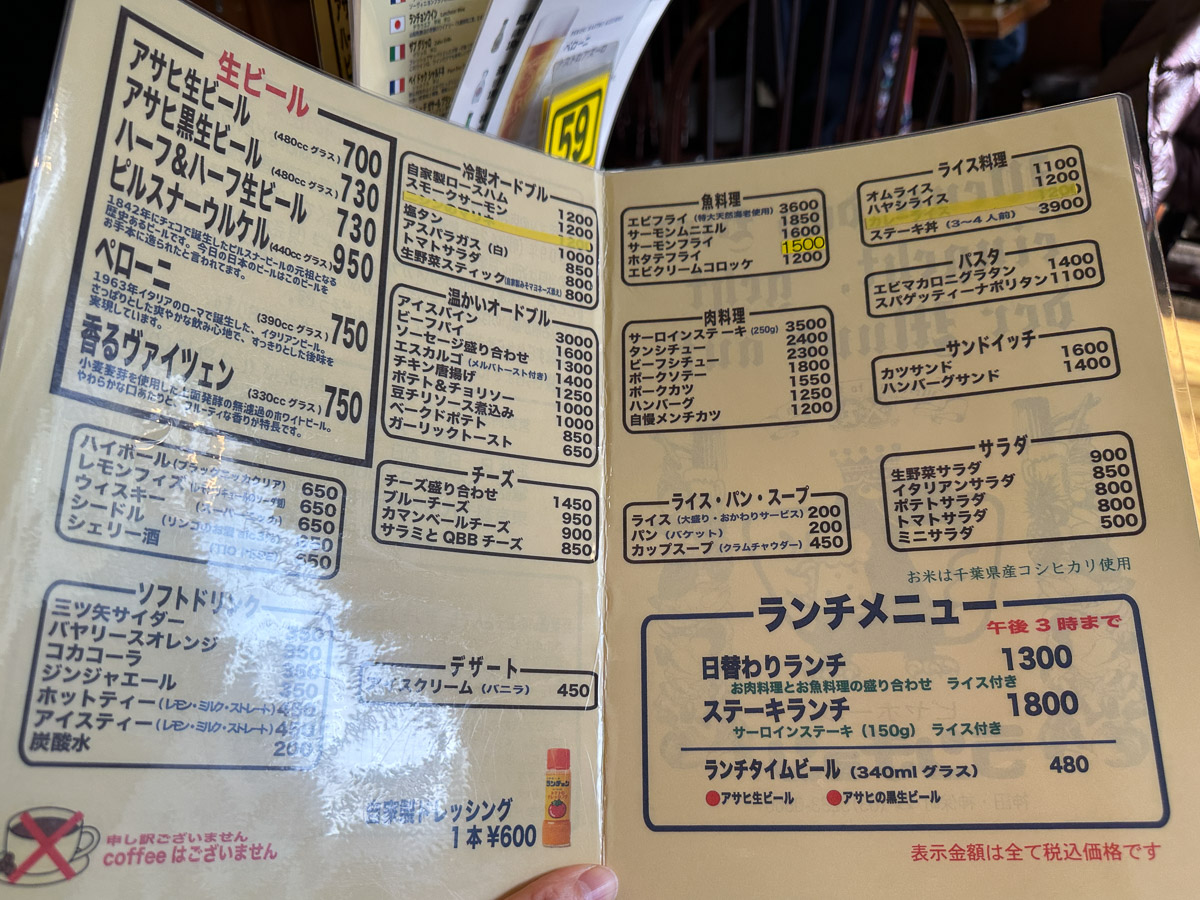 ランチョンワイン
59
生ビール
アサヒ生ビール (480cc グラス) 700
アサヒ黒生ビール (480cc グラス) 730
ハーフ&ハーフ生ビール 730
ピルスナーウルケル (440cc グラス) 950
1842年にチェコで誕生したピルスナービールの元祖となる
歴史あるビールです。今日の日本のビールはこのビールを
お手本に造られたと言われてます。
ペローニ (390cc グラス) 750
1963年イタリアのローマで誕生した、イタリアンビール。
さっぱりとした爽やかな飲み心地で、すっきりとした後味を
実現しています。
香るヴァイツェン (330cc グラス) 750
小麦麦芽を使用した上面発酵の無濾過のホワイトビール。
やわらかな口あたりと、フルーティな香りが特長です。
ハイボール (ブラックニッカクリア) 650
レモンフィズ 650
ウィスキー 650
シードル
シェリー酒 650
ソフトドリンク
三ツ矢サイダー
バヤリースオレンジ
コカコーラ
ジンジャエール
ホットティー (レモン・ミルク・ストレート)
アイスティー (レモン・ミルク・ストレート)
炭酸水 200
申し訳ございません
coffee はございません
冷製オードブル
自家製ロースハム 1200
スモークサーモン 1200
塩タン 1000
アスパラガス (白) 850
トマトサラダ 800
生野菜スティック (自家製みそマヨネーズ添え) 800
温かいオードブル
アイスバイン 3000
ビーフパイ 1600
ソーセージ盛り合わせ 1300
エスカルゴ (メルバトースト付き) 1400
チキン唐揚げ 1250
ポテト&チョリソー 1000
豆チリソース煮込み 1000
ベークドポテト 850
ガーリックトースト 650
チーズ
チーズ盛り合わせ 1450
ブルーチーズ 950
カマンベールチーズ 900
サラミとQBBチーズ 850
デザート
アイスクリーム (バニラ) 450
自家製ドレッシング
1本¥600
魚料理
エビフライ (特大天然海老使用) 3600
サーモンムニエル 1850
サーモンフライ 1600
ホタテフライ 1500
エビクリームコロッケ 1200
肉料理
サーロインステーキ (250g) 3500
タンシチュー 2400
ビーフシチュー 2300
ポークソテー 1800
ポークカツ 1550
ハンバーグ 1250
自慢メンチカツ 1200
ライス・パン・スープ
ライス (大盛り・おかわりサービス) 200
パン (バケット) 200
カップスープ (クラムチャウダー) 450
ライス料理
オムライス 1100
ハヤシライス 1200
ステーキ丼 (3〜4人前) 3900
パスタ
エビマカロニグラタン 1400
スパゲッティーナポリタン 1100
サンドイッチ
カツサンド 1600
ハンバーグサンド 1400
サラダ
生野菜サラダ 900
イタリアンサラダ 850
ポテトサラダ 800
トマトサラダ 800
ミニサラダ 500
お米は千葉県産コシヒカリ使用
ランチメニュー 午後3時まで
日替わりランチ 1300
お肉料理とお魚料理の盛り合わせ ライス付き
ステーキランチ 1800
サーロインステーキ (150g) ライス付き
ランチタイムビール (340ml グラス) 480
●アサヒ生ビール ●アサヒの黒生ビール
表示金額は全て税込価格です